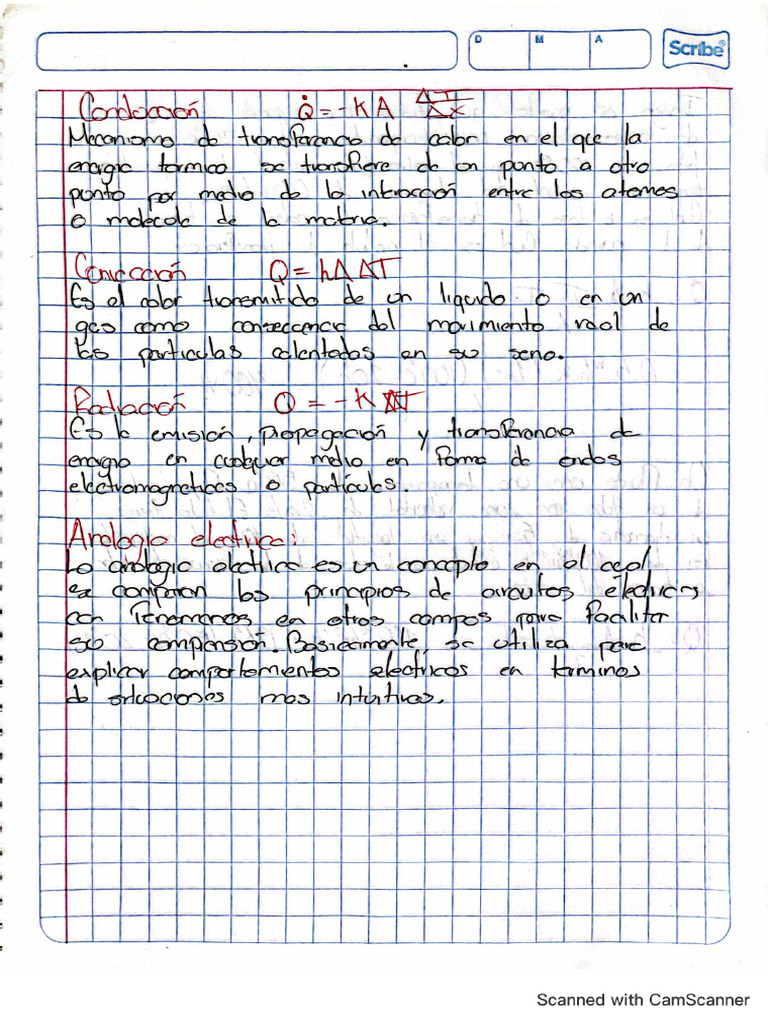 D M A Scribe®
Conducción Q̇ = -KA ΔT/Δx
Mecanismo de transferencia de calor en el que la
energia termica se transfiere de un punto a otro
punto por medio de la interacción entre los atomos
o molecula de la materia.
Convección Q = hA ΔT
Es el calor transmitido de un liquido o en un
gas como consecuencia del movimiento real de
las particulas calentadas en su seno.
Radiación Q = -K ΔT
Es la emisión, propagación y transferencia de
energia en cualquier medio en forma de ondas
electromagneticas o particulas.
Analogia electrica:
La analogia electrica es un concepto en el cual
se comparan los principios de circuitos eléctricos
con fenomenos en otros campos para facilitar
su compensión. Basicamente, se utiliza para
explicar comportamientos electricos en terminos
de situaciones mas intuitivas.
Scanned with CamScanner